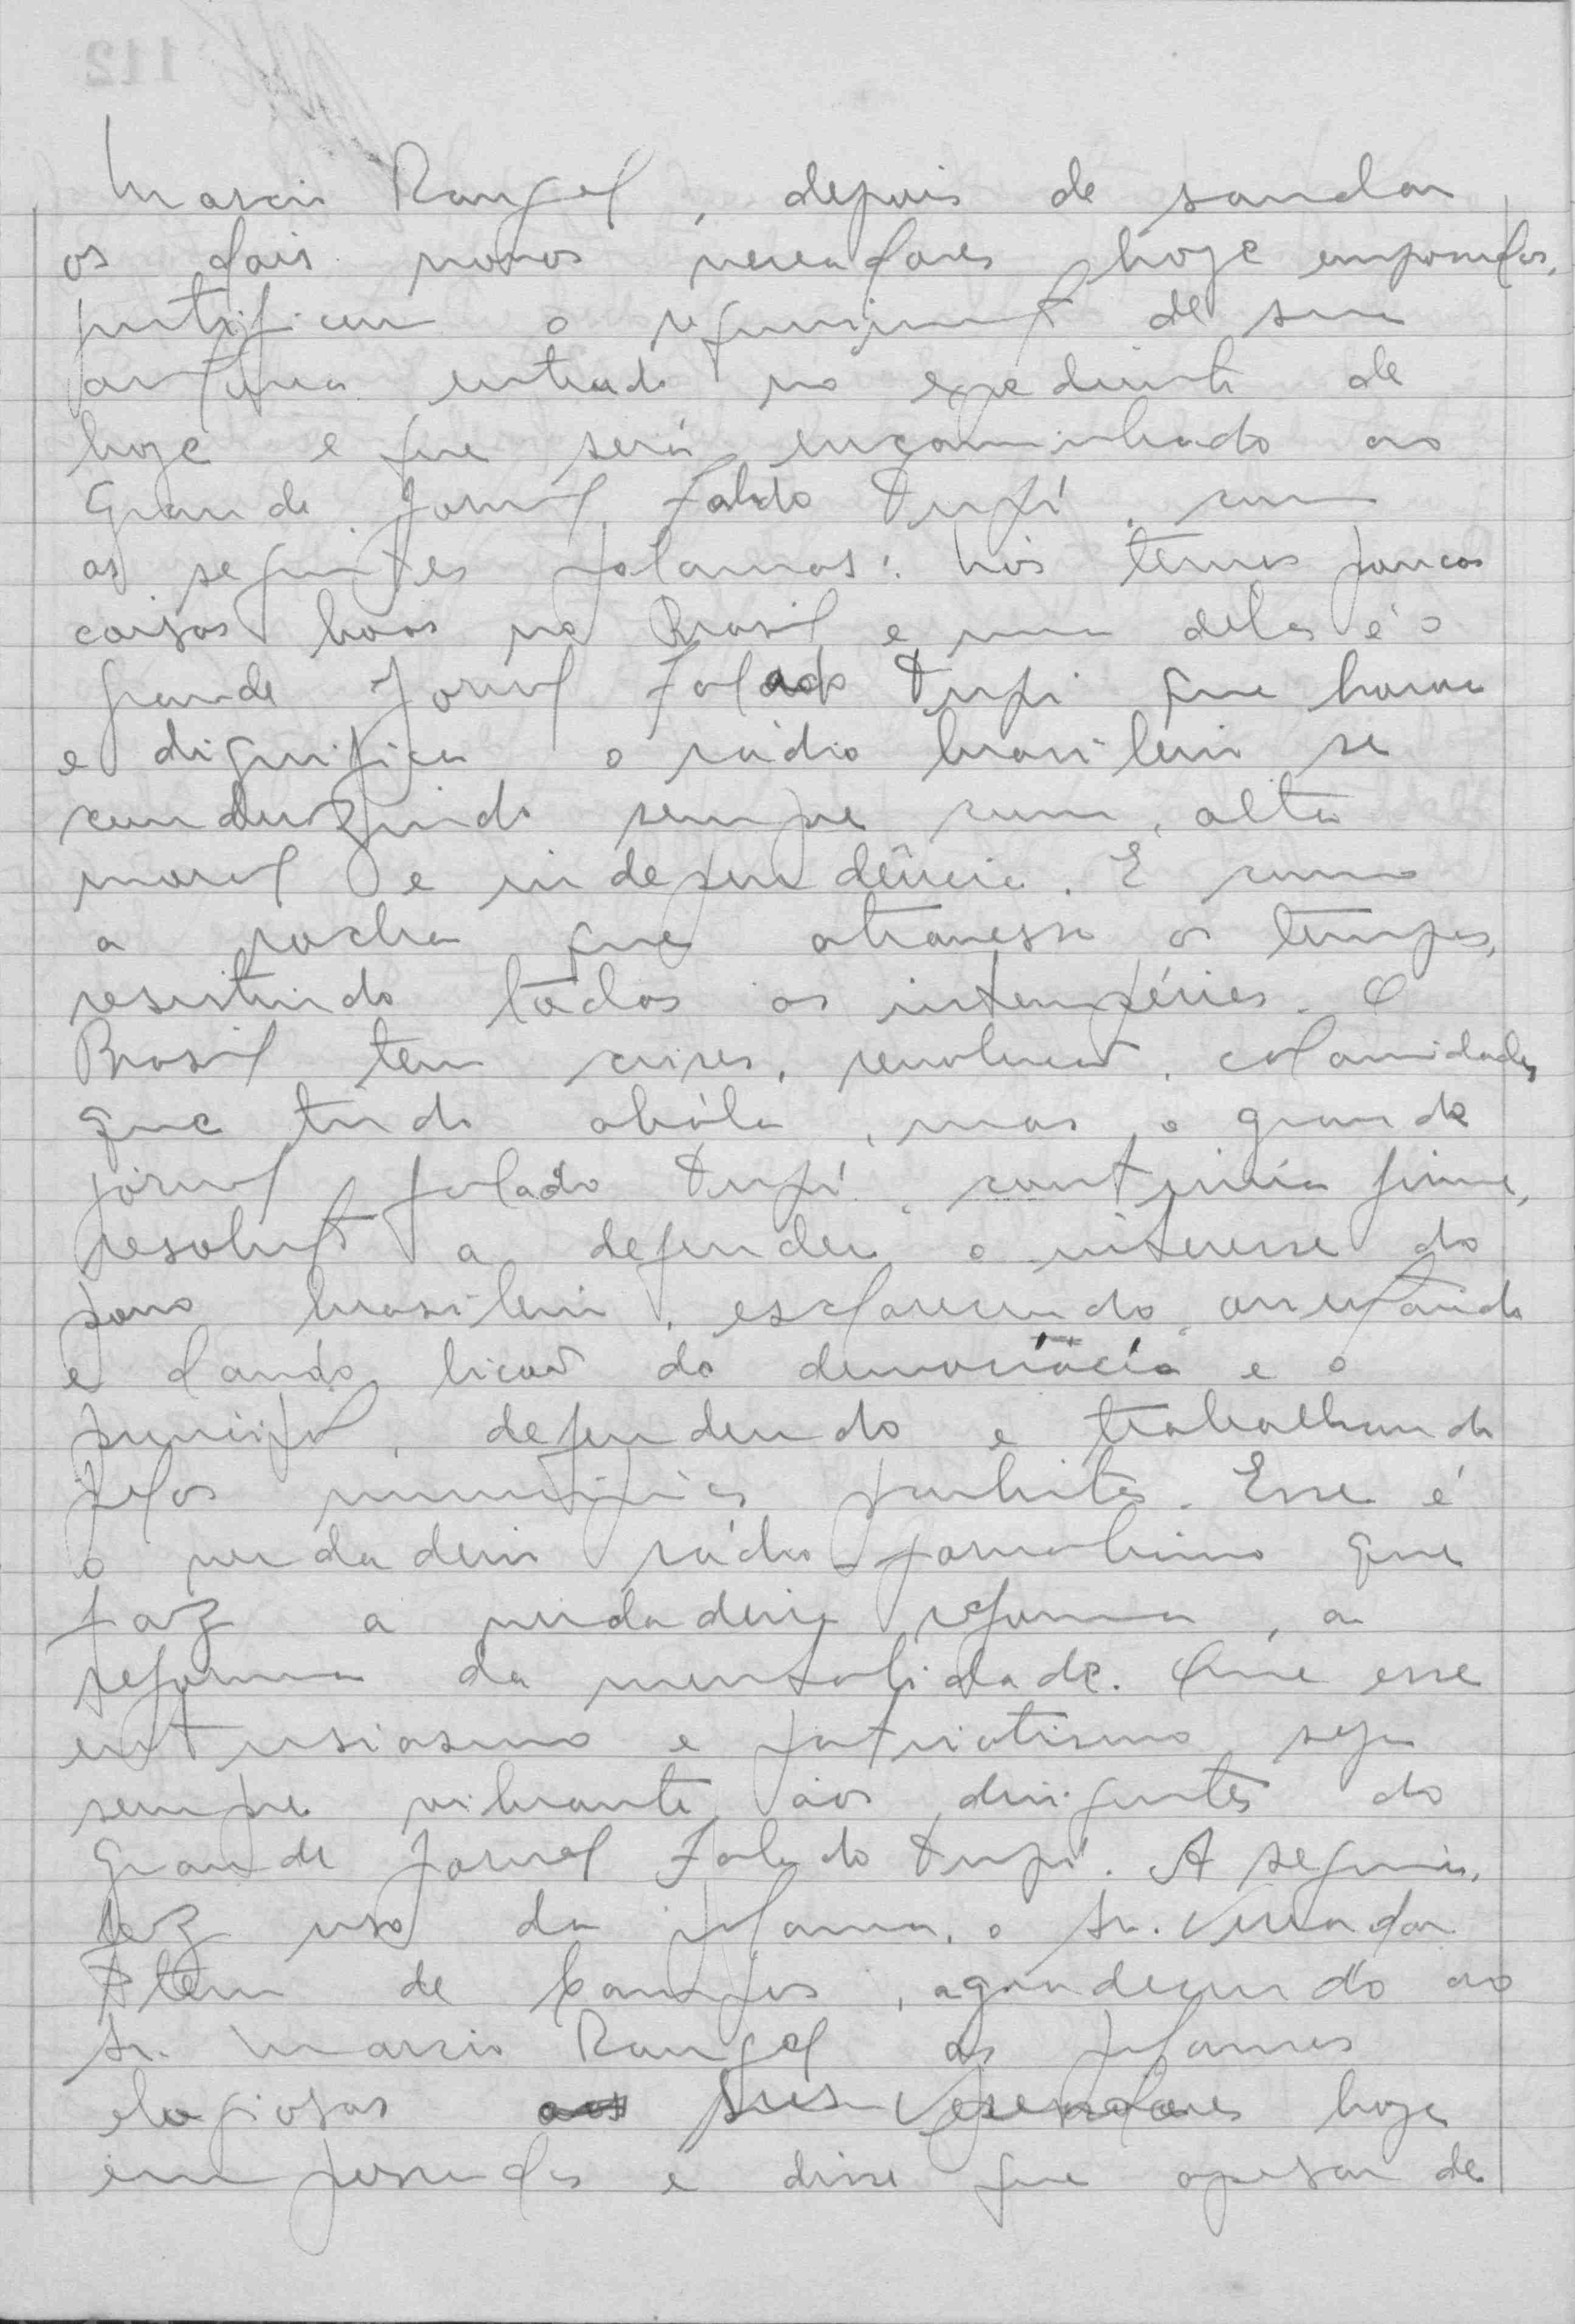 Marcio Rangel, depois de saudar
os dois novos vereadores hoje empossados,
justificou o requerimento de sua
autoria entrado no expediente de
hoje e que será encaminhado ao
Grande Jornal Falado Tupí, com
as seguintes palavras: Nós temos poucas
coisas boas no Brasil e uma delas é o
grande Jornal Falado Tupi que honra
e dignifica o rádio brasileiro se
conduzindo sempre com alta
moral e independência. É como
a rocha que atravessa os tempos,
resistindo todas as intempéries. O
Brasil tem crises, revolução, calamidades
que tudo abála, mas o grande
jornal falado Tupí, continúa firme,
resoluto a defender o interesse do
povo brasileiro, esclarecendo, orientando
e dando lição da democrácia e o
principal, defendendo e trabalhando
pelos municípios paulistas. Esse é
o verdadeiro rádio-jornalismo que
faz a verdadeira reforma, a
reforma da mentalidade. Que esse
entusiasmo e patriotismo seja
sempre vibrante aos dirigentes do
Grande Jornal Falado Tupí. A seguir,
fez uso da palavra, o Sr. Vereador
de Campos, agradecendo ao
Sr. Marcio Rangel as palavras
elogiosas aos Vereadores hoje
empossados e disse que apesar de